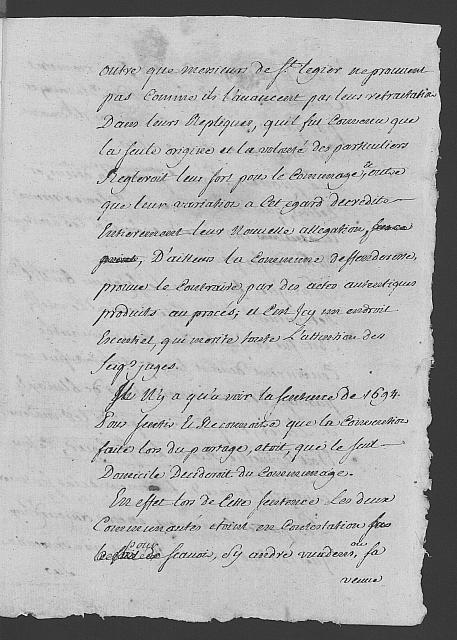 outre que messieurs de St. legier ne prouvent
pas comme ils l'avancent pas leur retractation
Dans leurs Repliques, quil fut Convenu que
la seule origine et la volonté des particuliers
Regleroit leur sort pour le Communage, et outre
que leur variation a cet egard decredite
Entierement leur Nouvelle allegation,
D'ailleurs la Commune deffenderesse,
prouve le Contraire par des actes autentiques
produits au procés, et C'est Icy un endroit
Essentiel, qui merite toute L'attention des
Seigrs juges.
Il N'y a qu'a voir la sentence de 1694.
Pour sentir et Reconnoitre que la Convention
faite lors du partage, etoit, que le seul
Domicile Decideroit du Communage.
En effet lors de Cette sentence Les deux
Communautes etoient en Contestation
pour scavoir, s'y andre ou sa
veuve